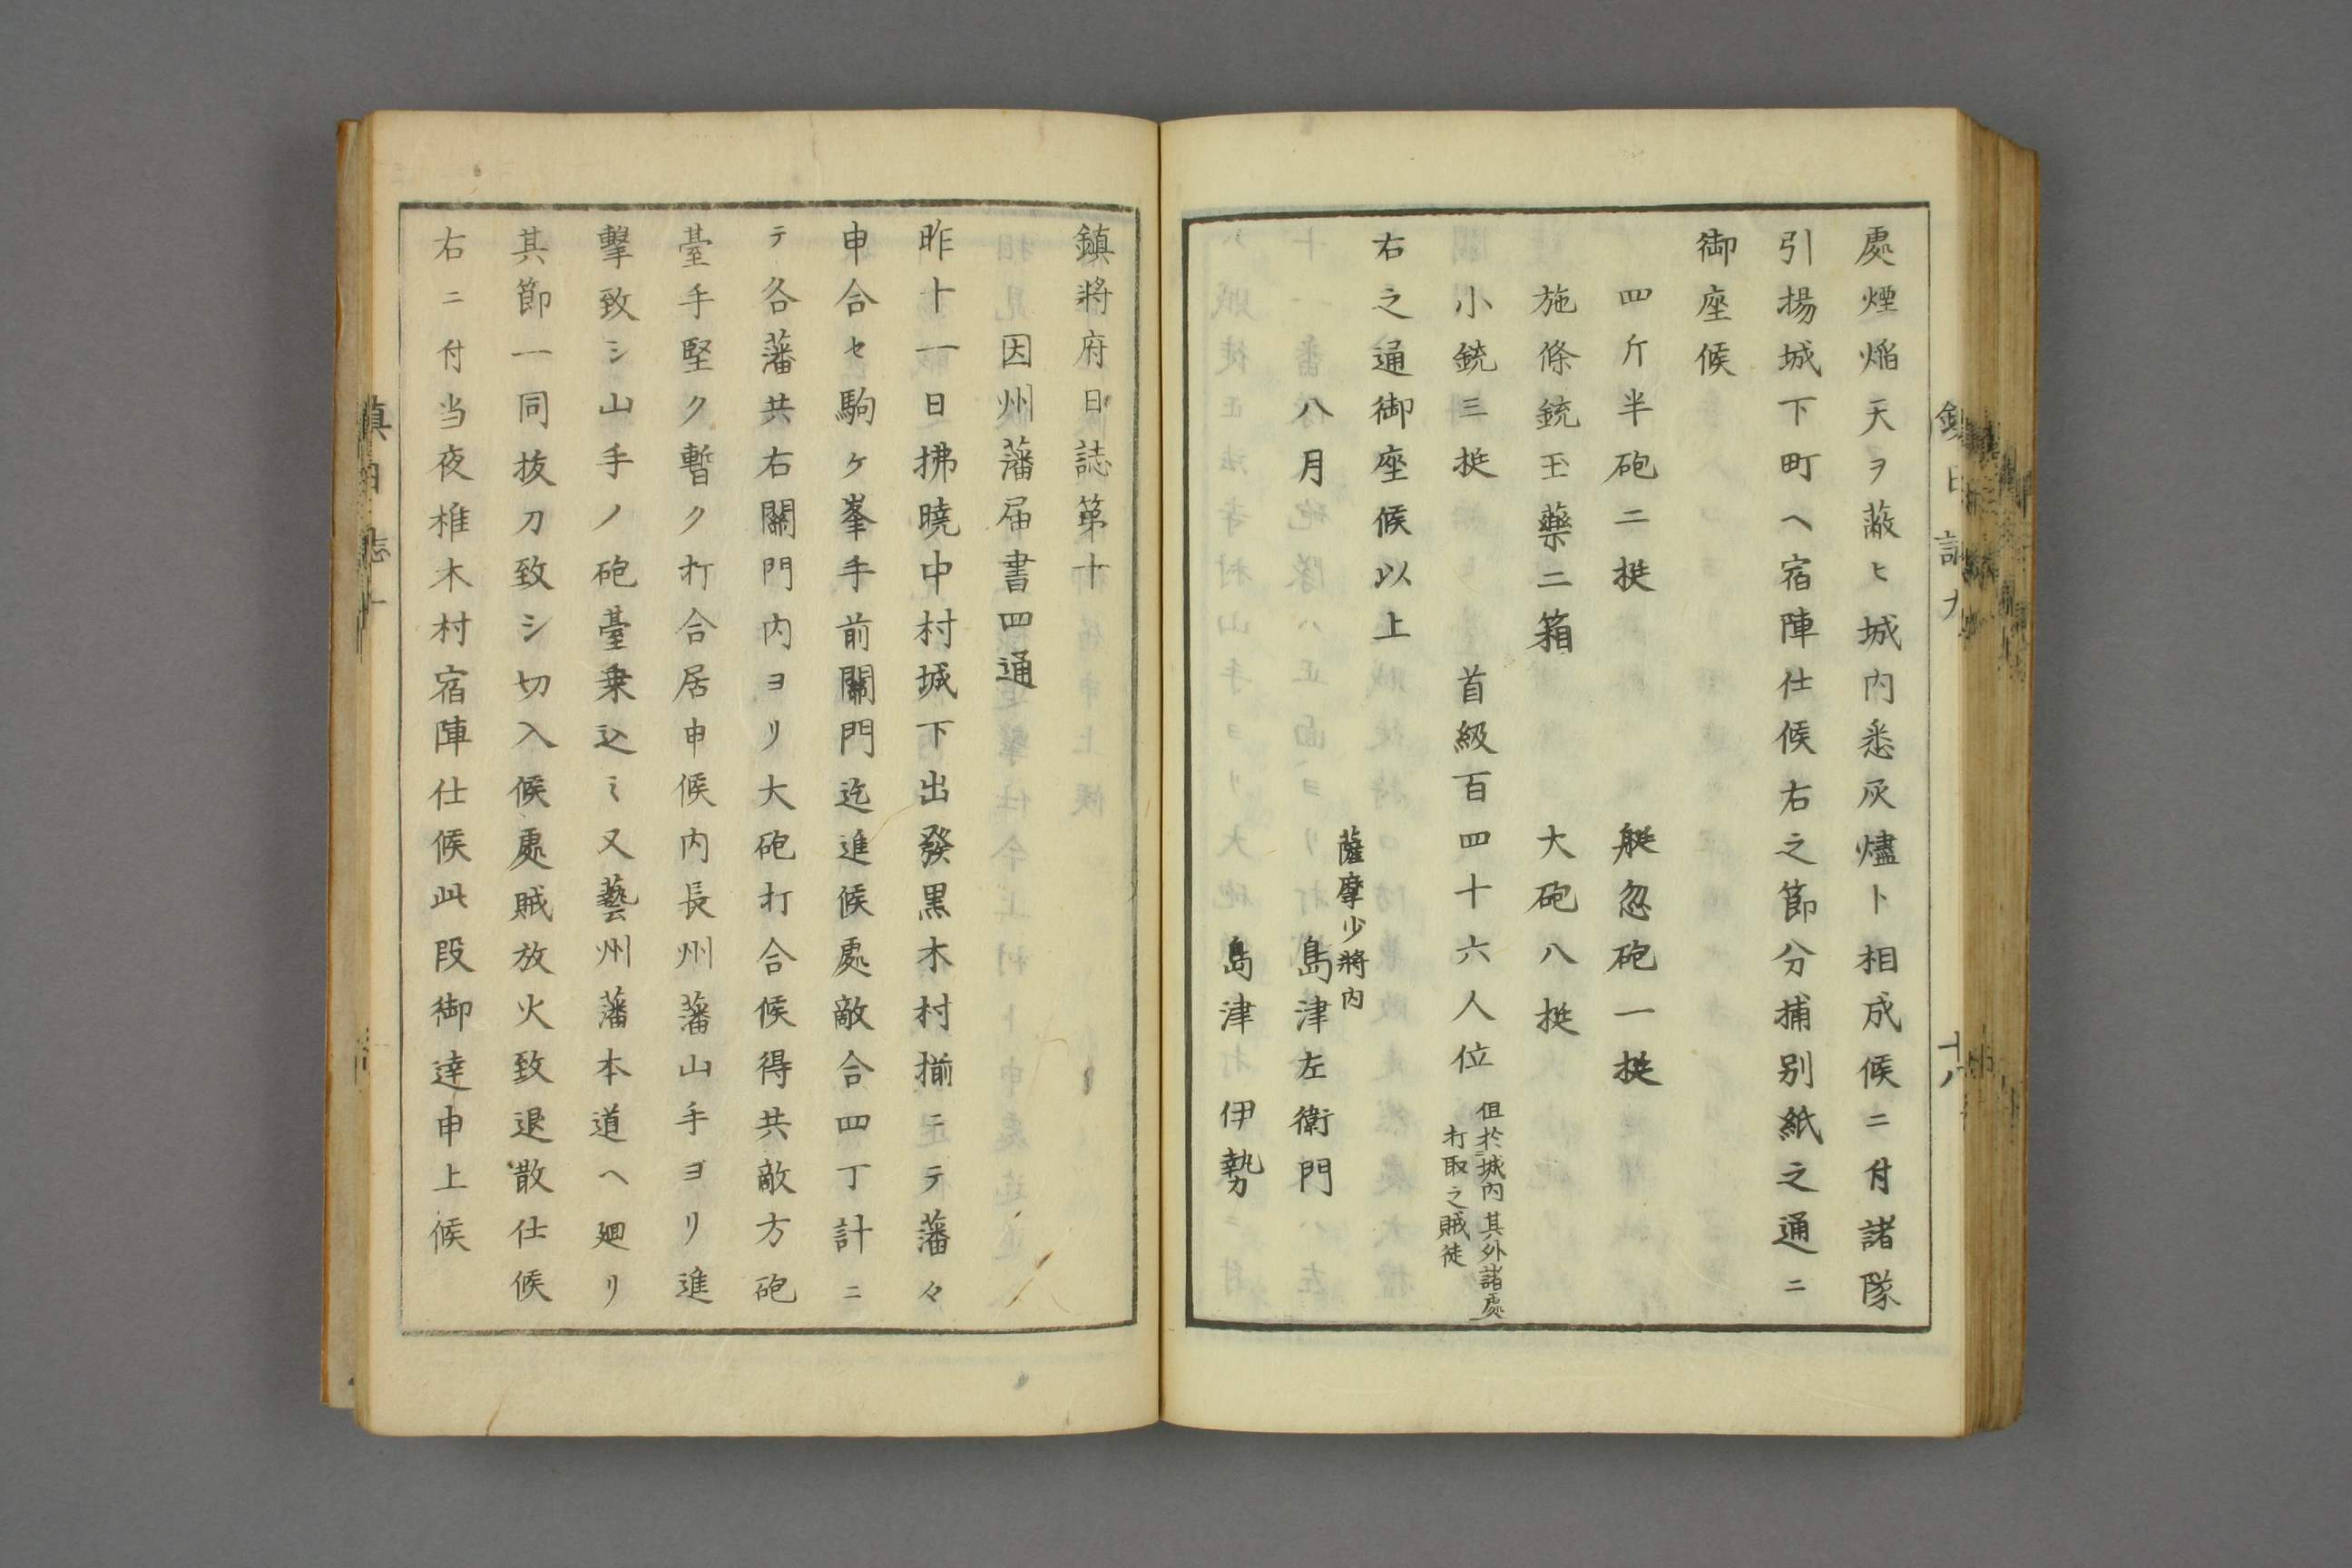 處煙焔天ヲ蔽ヒ城内悉灰燼ト相成候ニ付諸隊
引揚城下町ヘ宿陣仕候右之節分捕別紙之通ニ
御座候
四斤半砲二挺
艇忽砲一挺
施條銃玉藥二箱
大砲八挺
小銃三挺
首級百四十六人位
但於城内其外諸處
打取之賊徒
右之通御座候以上
薩摩少將内
八月
島津左衛門
島津伊勢
鎮將府日誌第十
因州藩届書四通
昨十一日拂曉中村城下出發黒木村揃ニテ藩々
申合セ駒ヶ峯手前關門迄進候處敵合四丁計ニ
テ各藩共右關門内ヨリ大砲打合候得共敵方砲
臺手堅ク暫ク打合居申候内長州藩山手ヨリ進
擊致シ山手ノ砲臺乗込ミ又藝州藩本道ヘ廻リ
其節一同拔刀致シ切入候處賊放火致退散仕候
右ニ付当夜椎木村宿陣仕候此段御達申上候